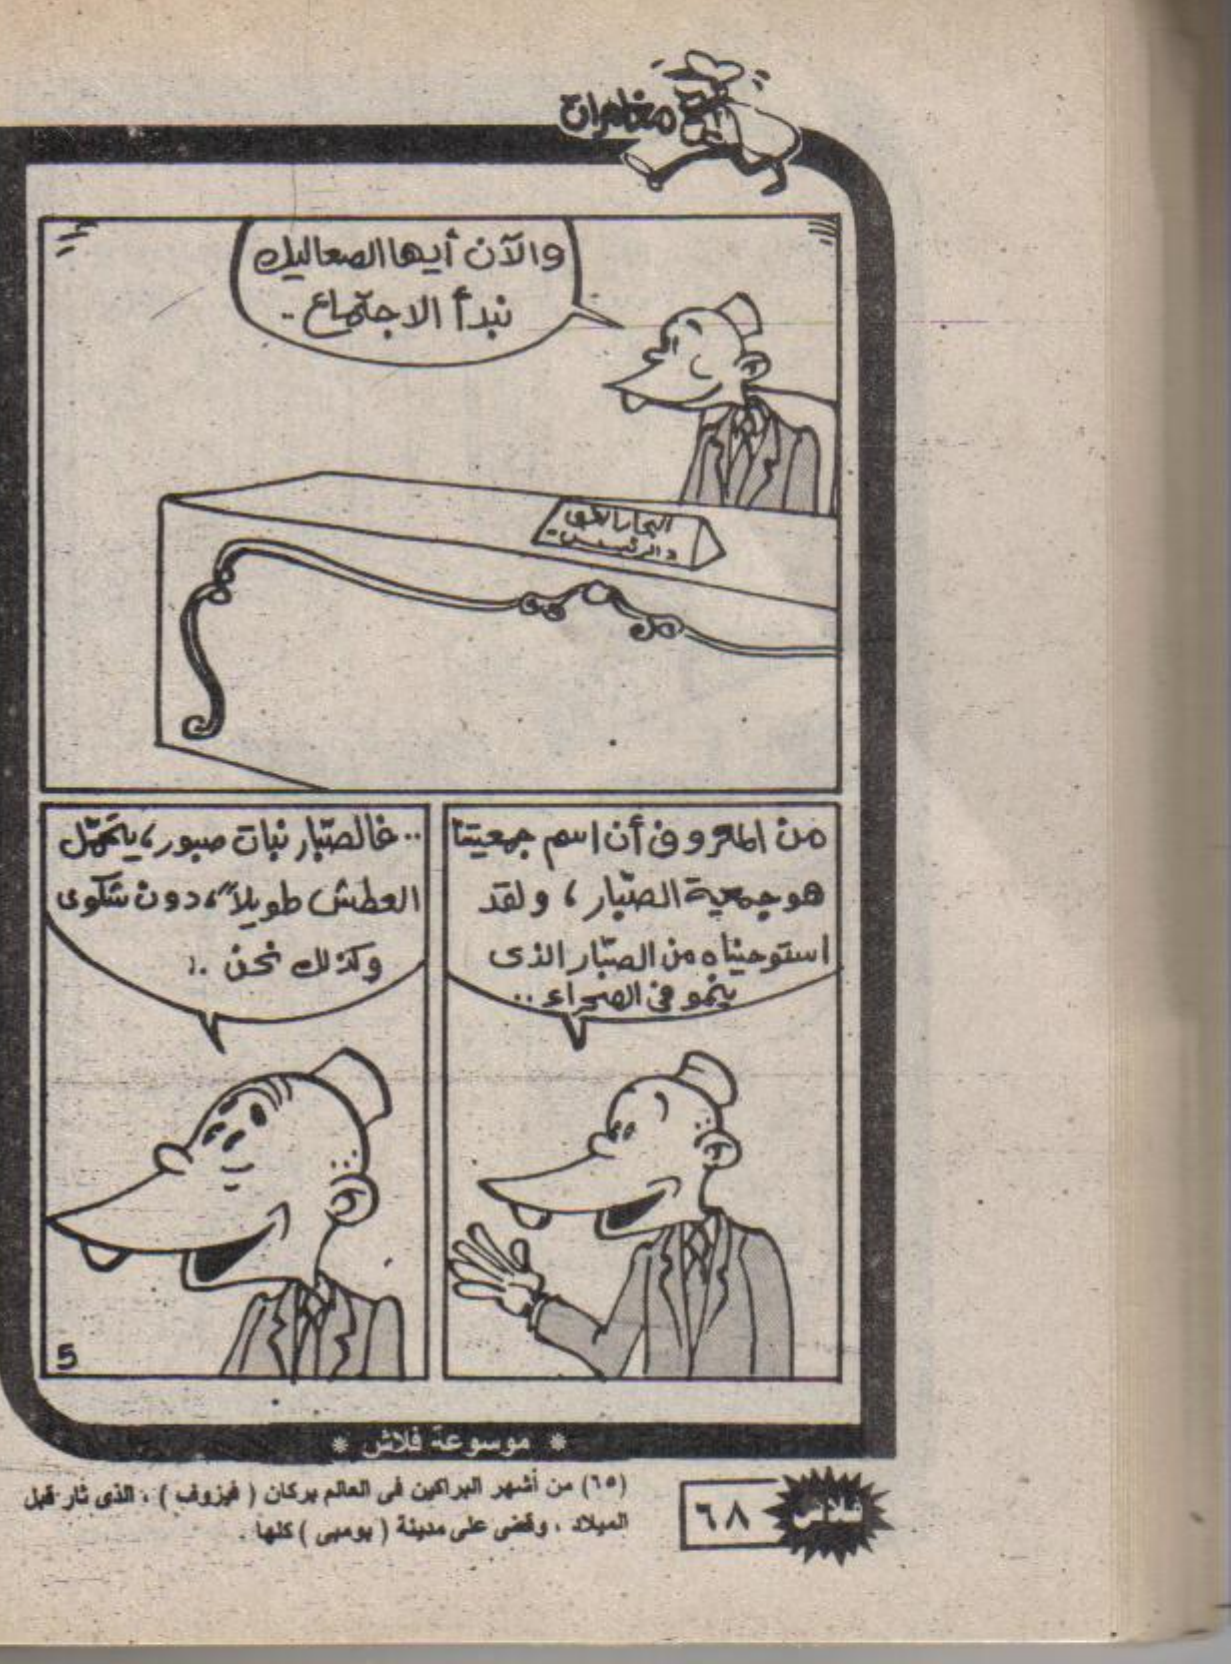 مغامرات
والآن أيها الصعاليك
نبدأ الاجتماع ..
الرئيس
من المعروف أن اسم جمعيتنا
هو جمعية الصبّار ، ولقد
استوحيناه من الصبّار الذى
ينمو فى الصحراء ..
.. فالصبّار نبات صبور ، يتحمّل
العطش طويلاً ، دون شكوى
وكذلك نحن ..
5
* موسوعة فلاش *
(٦٥) من أشهر البراكين فى العالم بركان ( فيزوف ) ، الذى ثار قبل
الميلاد ، وقضى على مدينة ( بومبى ) كلها .
فلاش
٦٨